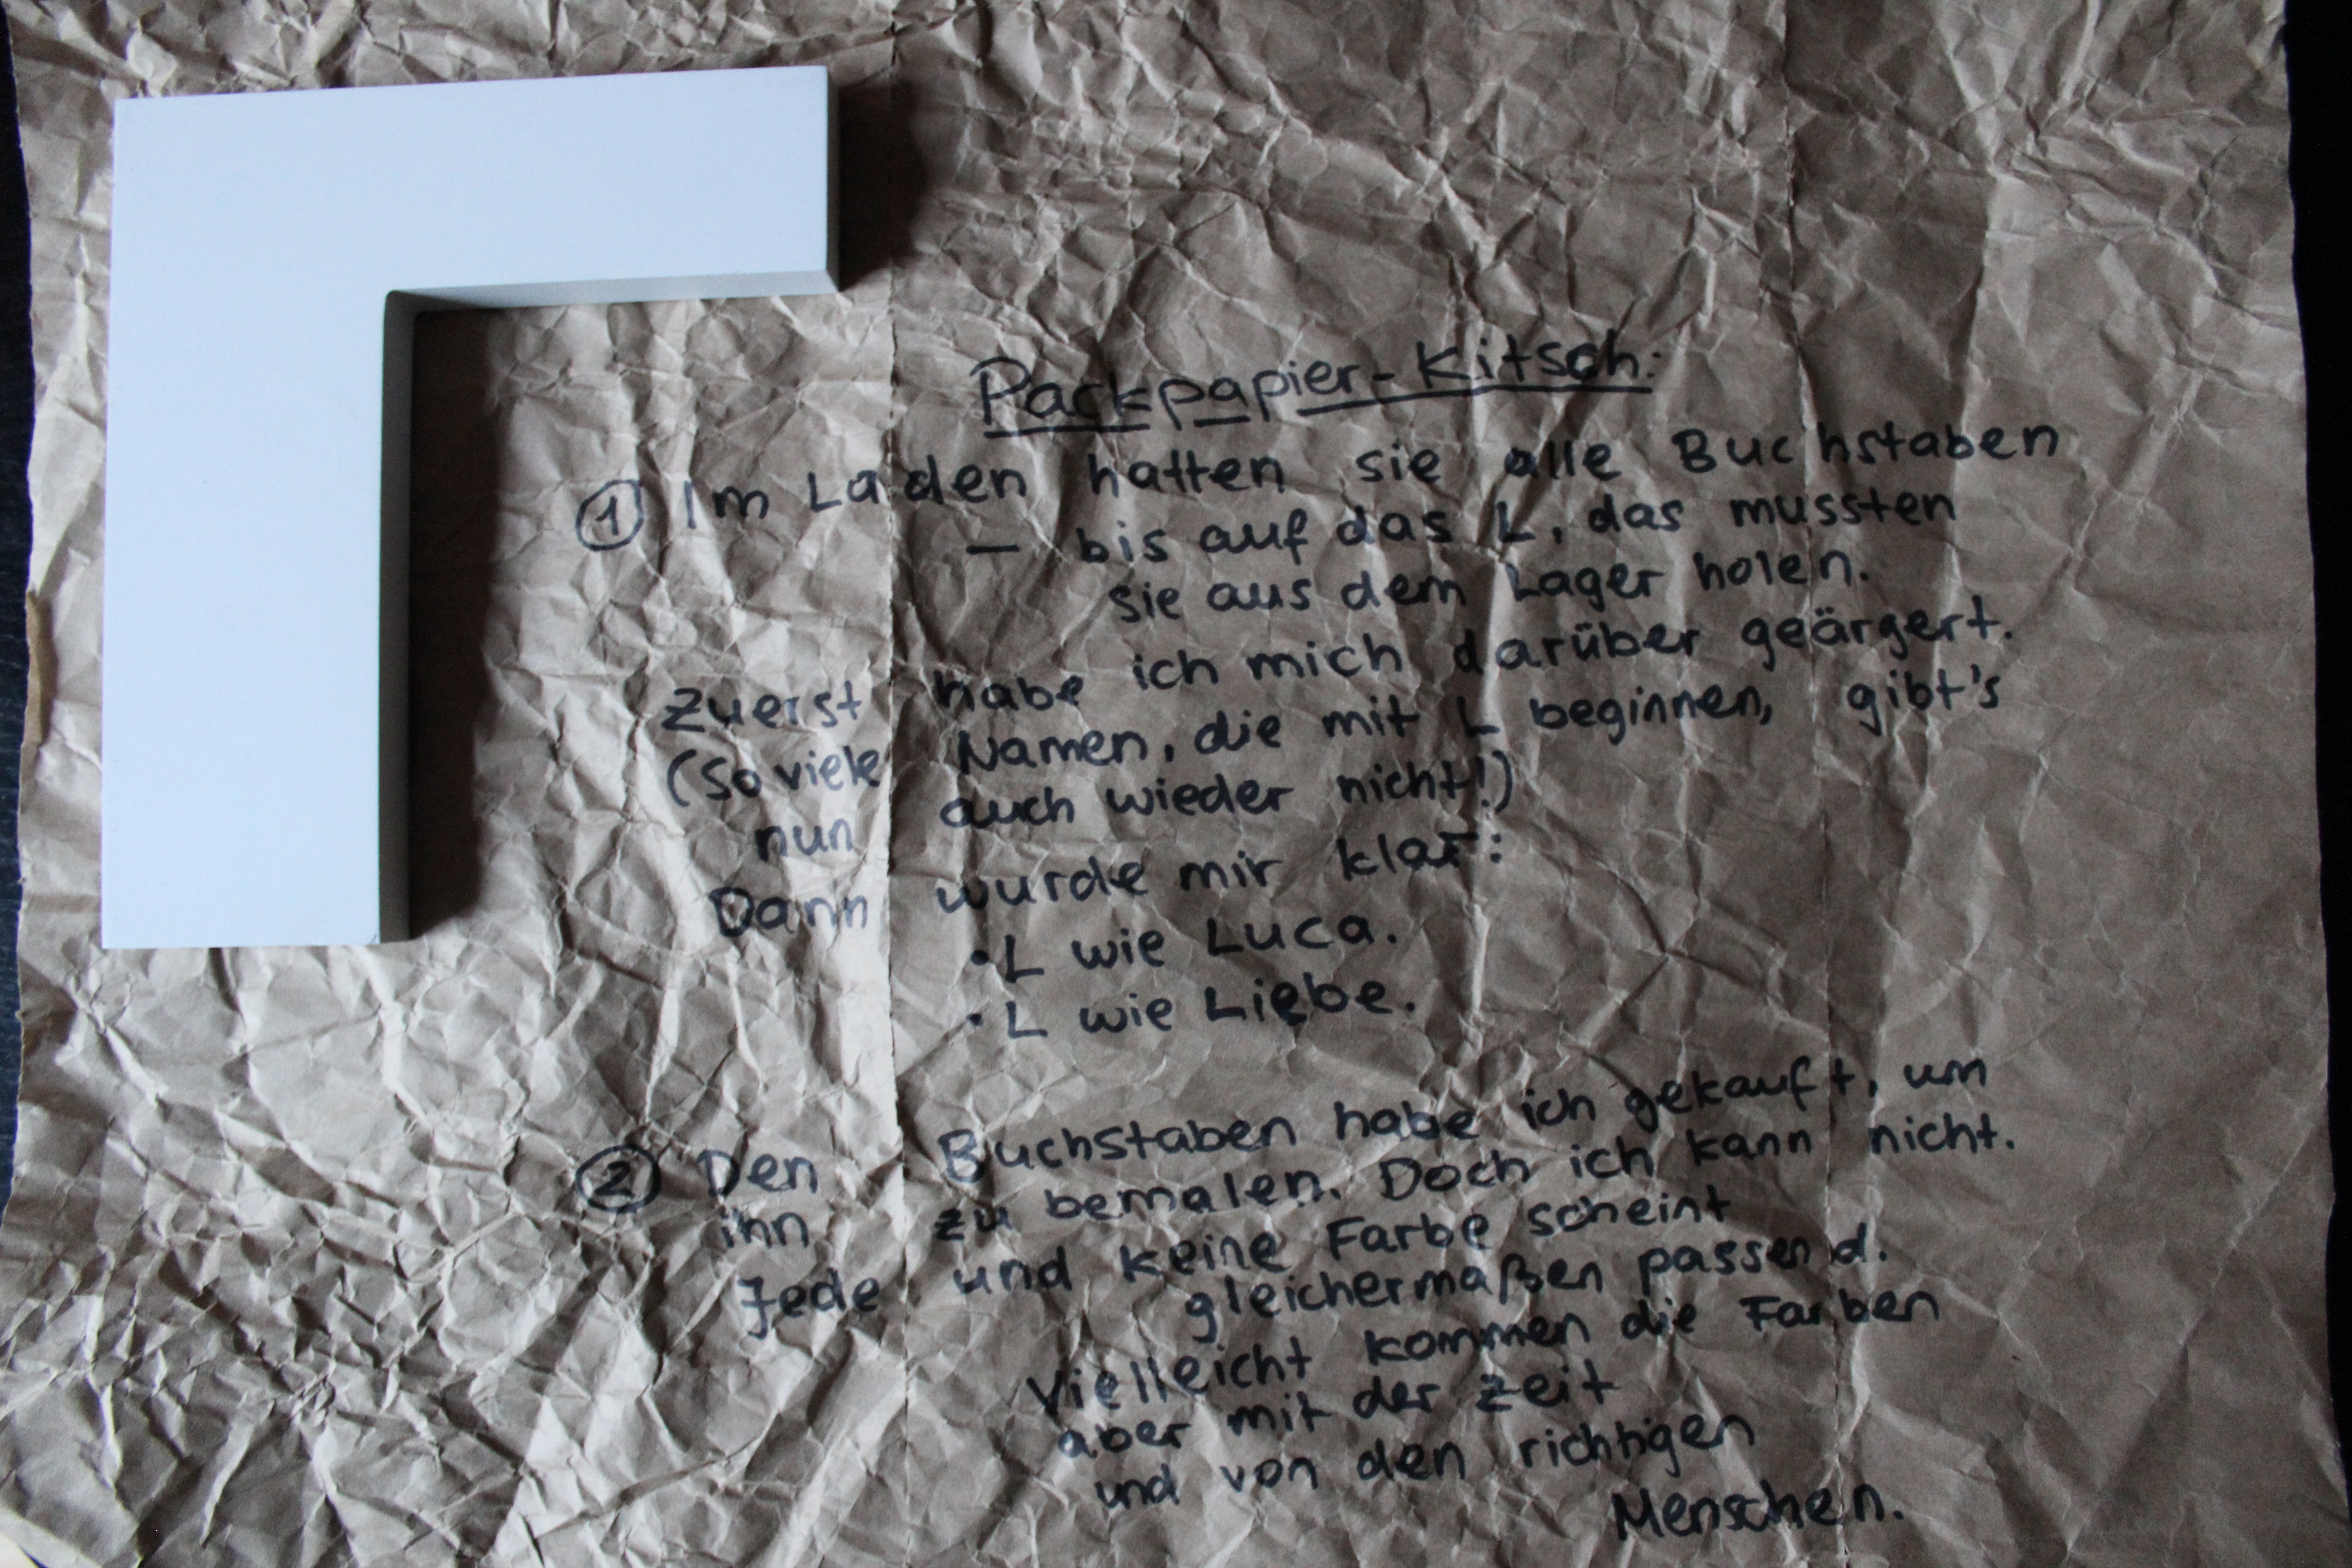 Packpapier-Kitsch:
① Im Laden hatten sie alle Buchstaben
– bis auf das L, das mussten
sie aus dem Lager holen.
Zuerst habe ich mich darüber geärgert.
(So viele Namen, die mit L beginnen, gibt's
nun auch wieder nicht!)
Dann wurde mir klar:
• L wie Luca.
• L wie Liebe.
② Den Buchstaben habe ich gekauft, um
ihn zu bemalen. Doch ich kann nicht.
Jede und keine Farbe scheint
gleichermaßen passend.
Vielleicht kommen die Farben
aber mit der Zeit
und von den richtigen
Menschen.